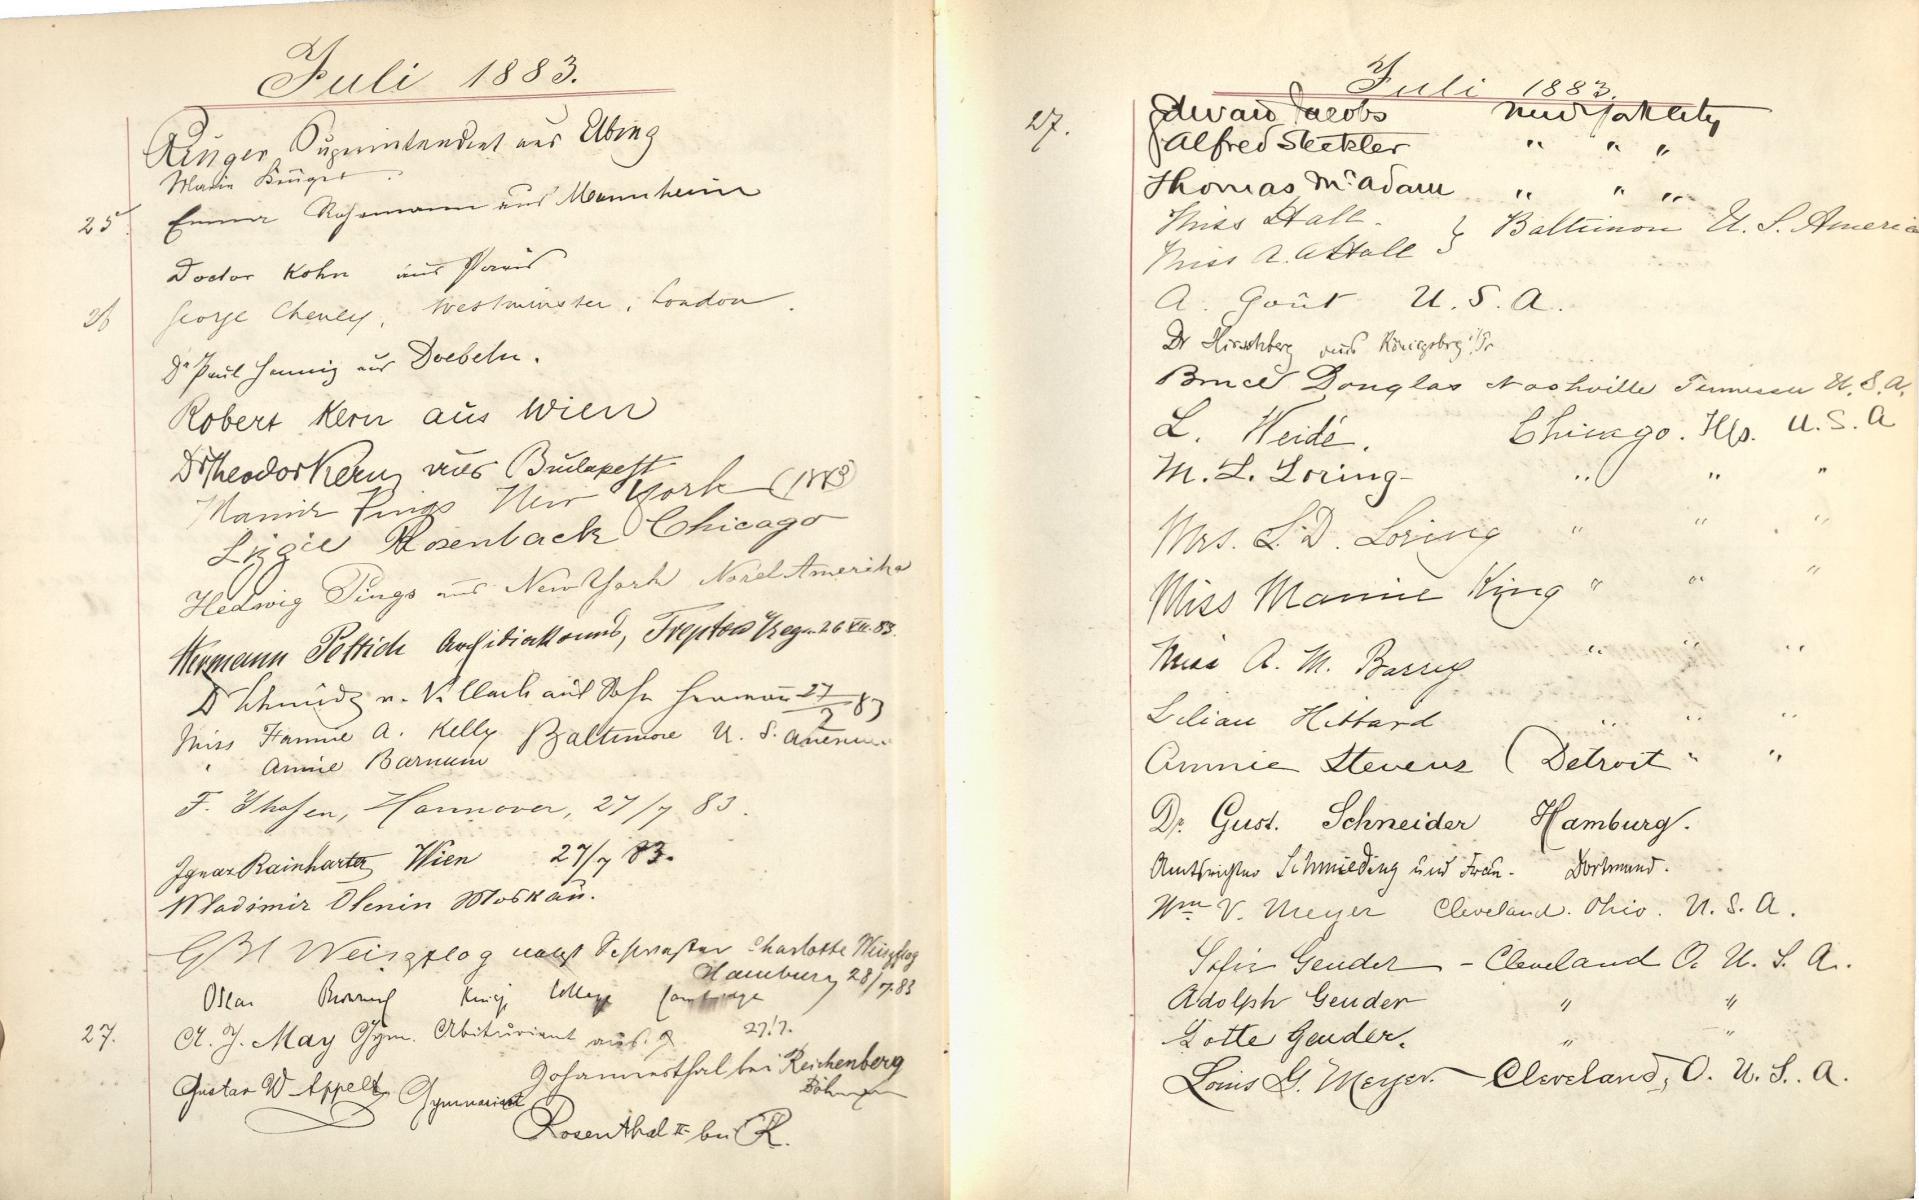 Juli 1883.
Krüger Superintendent aus Elbing
Marie Krüger
25.
Emma aus Mannheim
Doctor Kohn aus Paris
26
George Cheney, Westminster, London.
Dr Paul Hennig aus Doebeln.
Robert Kern aus Wien
Dr Theodor Kern aus Budapest
Mamie Pings New York (1883)
Lizzie Rosenback Chicago
Hedwig Pings aus New York Nord Amerika
Hermann Petrich Archidiakonus, Treptow a/Rega. 26 VII. 83.
Dr Schmidz v. aus 27/7 83
Miss Fannie A. Kelly Baltimore U. S. America
" Annie Barnum
F. Thofen, Hannover, 27/7 83.
Ignaz Rainharter Wien 27/7 83.
Wladimir Olenin Moskau.
Weiszflog nebst Schwester Charlotte Weiszflog
Hamburg 28/7. 83
Oscar Browning King's College Cambridge
27.
A. J. May Gym. Abiturient aus R. 27./7.
Johannesthal bei Reichenberg
Böhmen
Gustav W Appelt, Gymnasiast
Rosenthal II bei R.
Juli 1883.
27.
Edward Jacobs New York City
Alfred Steckler " " "
Thomas Mc Adam " " "
Miss Hall. } Baltimore U. S. America
Miss A. Hall
A. Goût U. S. A.
Dr Hirschberg aus Königsberg i/Pr
Bruce Douglas Nashville Tennessee U. S. A.
L. Weidé. Chicago. Ills. U. S. A
M. L. Loring - " " "
Mrs. L. D. Loring " " "
Miss Mamie King " " "
Miss A. M. Barry " " "
Lilian Hibbard " " "
Annie Stevens (Detroit " "
Dr. Gust. Schneider Hamburg.
Amtsrichter Schmieding und Frau. Dortmund.
Wm V. Meyer Cleveland. Ohio. U. S. A.
Sofie Gender - Cleveland O. U. S. A.
Adolph Gender " "
Lotte Gender. " "
Louis G. Meyer. - Cleveland, O. U. S. A.